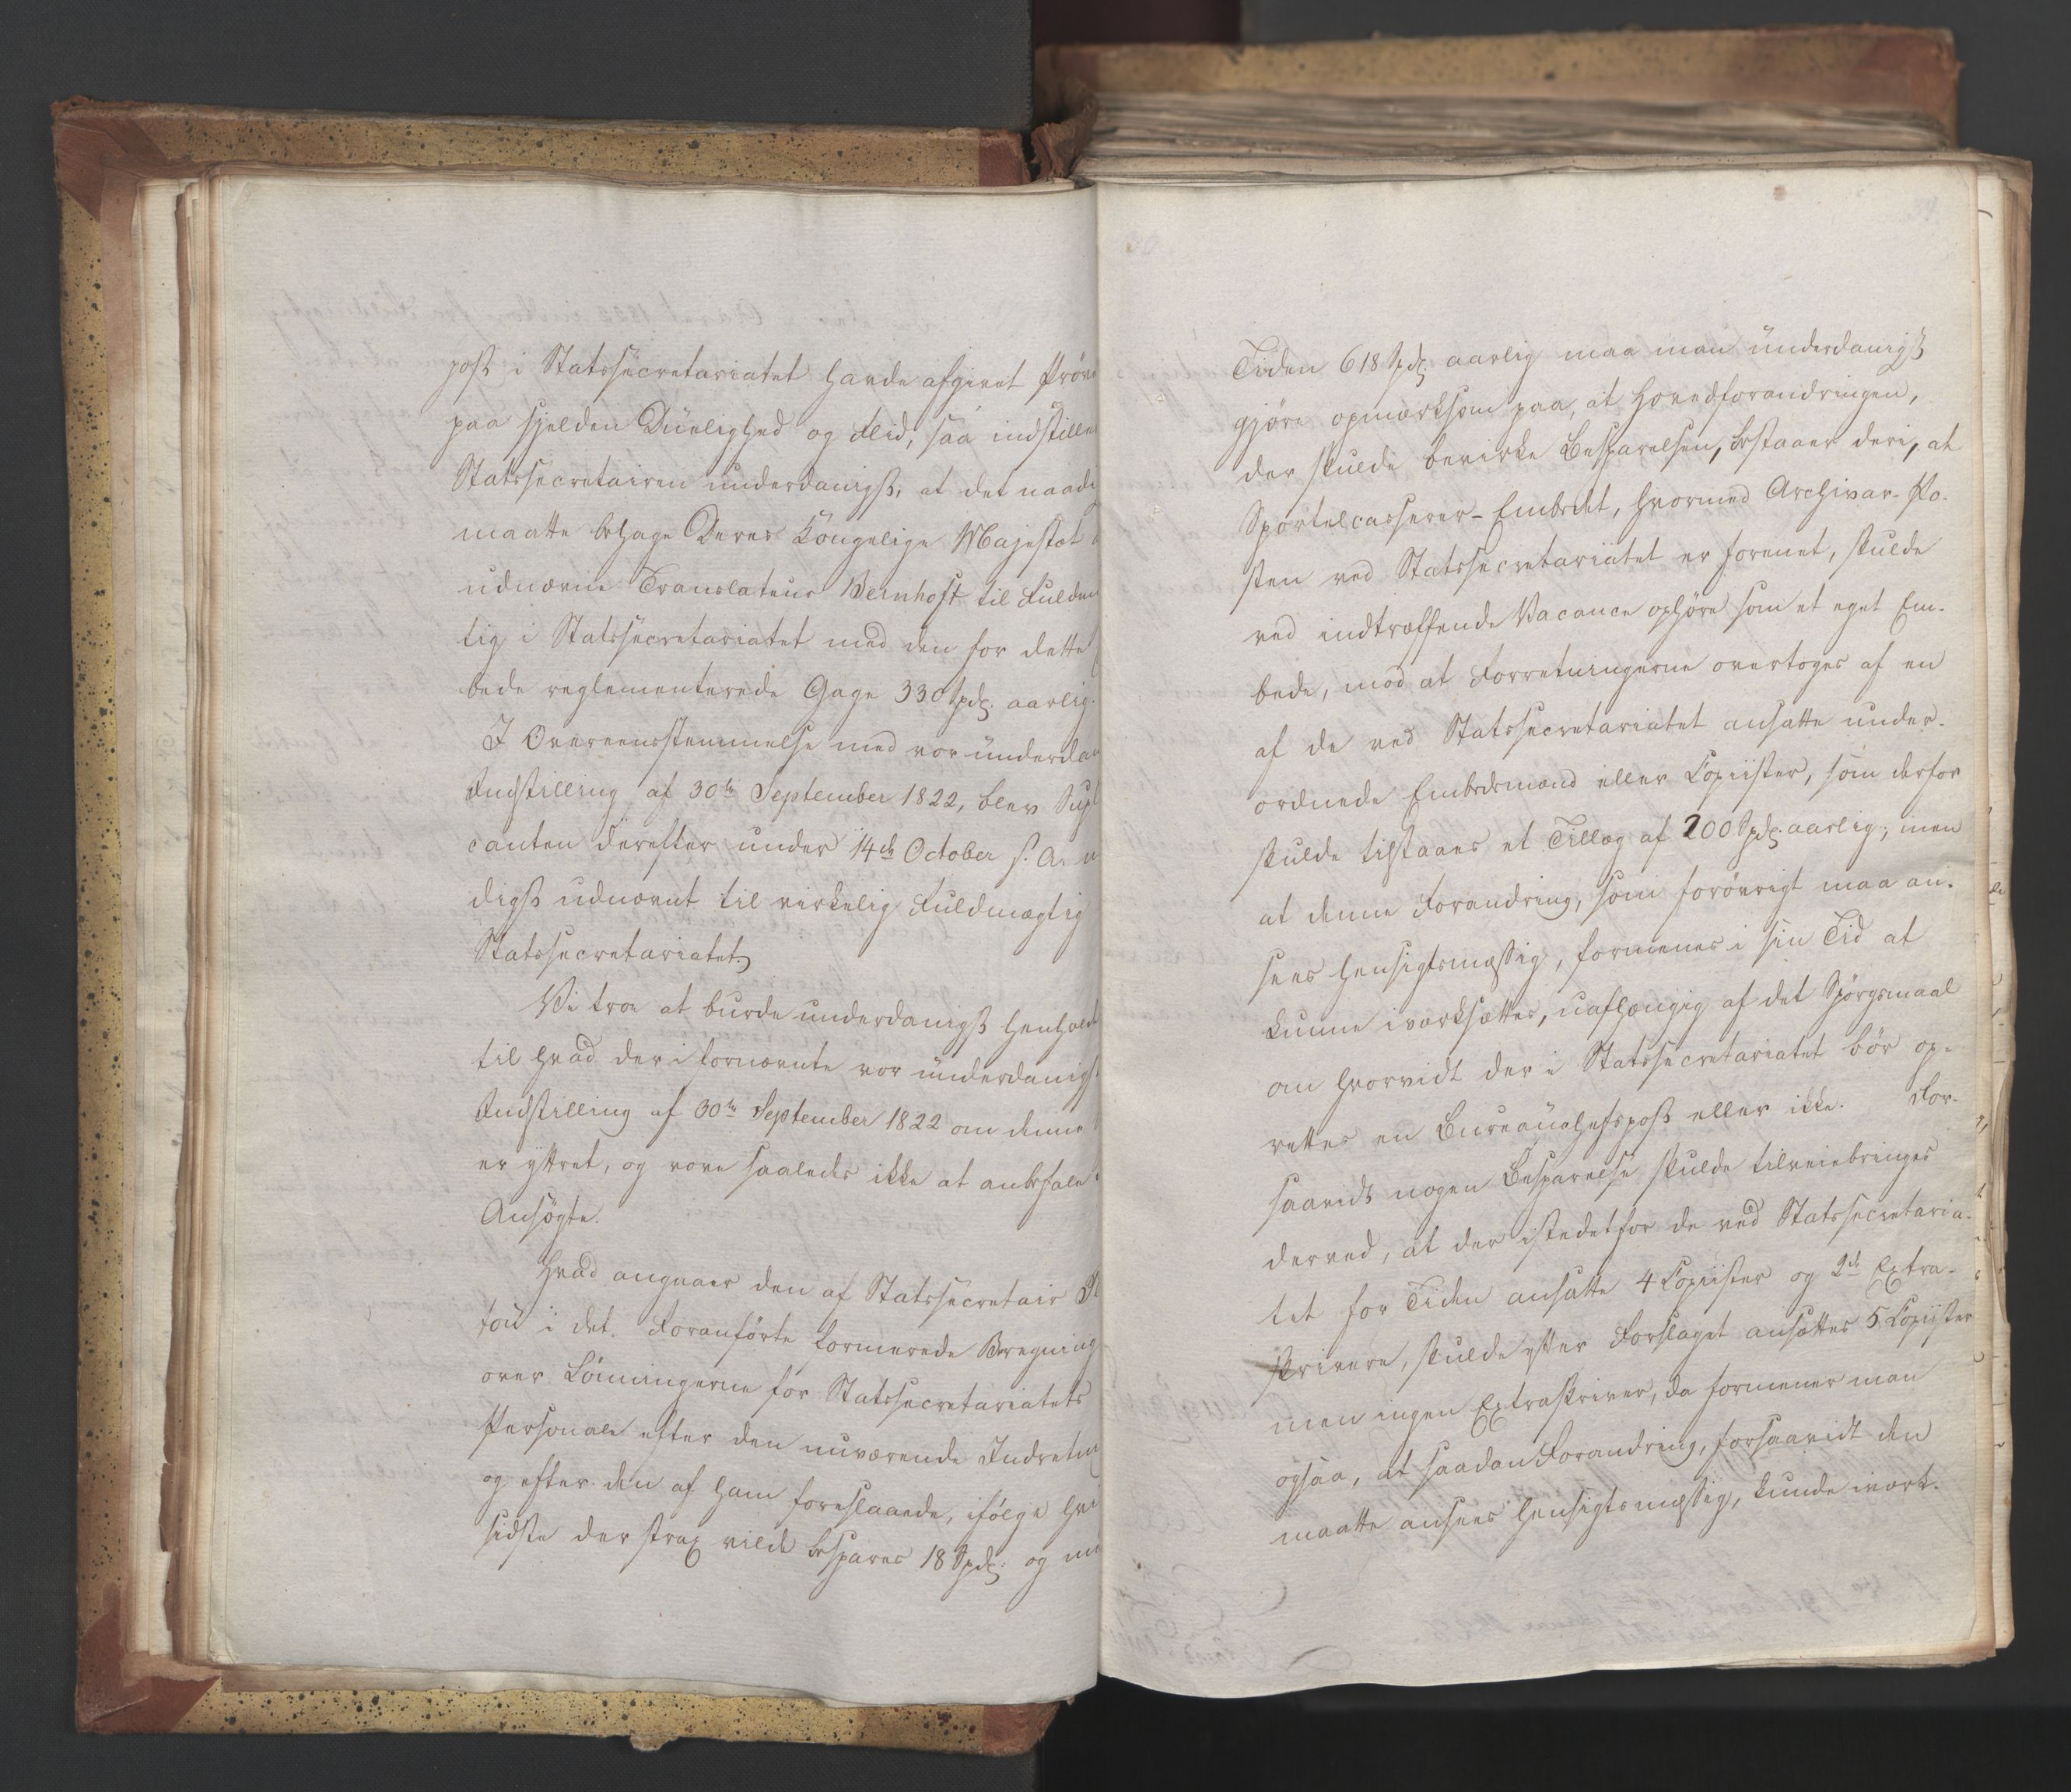 post i Statssecretariatet havde afgivet Prøve
paa sjelden Duelighed og Flid, saa indstiller
Statssecretairen underdanigst, at det naadi
maatte behage Deres Kongelige Majestæt
udnævne Translateur Bernhoft til Fuldmæg
tig i Statssecretariatet med den for dette
bede reglementerede Gage 330 Spd. aarlig.
I Overeensstemmelse med vor underdan
Indstilling af 30te September 1822, blev Supl
canten derefter under 14de October s. A. n
digst udnævnt til virkelig Fuldmægtig
Statssecretariatet.
Vi troe at burde underdanigst henholde
til hvad der i fornævnte vor underdanigst
Indstilling af 30te September 1822 om denne
er yttret, og vove saaledes ikke at anbefale
Ansøgte.
Hvad angaaer den af Statssecretair
ton i det Foranførte formerede Beregning
over Lønningerne for Statssecretariatets
Personale efter den nuværende Indretn
og efter den af ham foreslaaede, ifølge hvi
sidste der strax vilde bespares 18 Spd. og me
Tiden 618 Spd. aarlig maa man underdanigst
gjøre opmærksom paa, at Hovedforandringen,
der skulde bevirke Besparelsen, bestaaer deri, at
Sportelcasserer-Embedet, hvormed Archivar-Po-
sten ved Statssecretariatet er forenet, skulde
ved indtræffende Vacance ophøre som et eget Em-
bede, mod at Forretningerne overtoges af en
af de ved Statssecretariatet ansatte under-
ordnede Embedsmænd eller Copiister, som derfor
skulde tilstaaes et Tillæg af 200 Spd. aarlig; men
at denne Forandring, som forøvrigt maa an-
sees hensigtsmæssig, formenes i sin Tid at
kunne iværksættes, uafhængig af det Spørgsmaal
om hvorvidt der i Statssecretariatet bør op-
rettes en Bureauchefspost eller ikke. For-
saavidt nogen Besparelse skulde tilveiebringes
derved, at der istedetfor de ved Statssecretaria-
tet for Tiden ansatte 4 Copiister og 2de Extra-
skrivere, skulde efter Forslaget ansættes 5 Copiister
men ingen Extraskriver, da formener man
ogsaa, at saadan Forandring, forsaavidt den
maatte ansees hensigtsmæssig, kunde iværk-